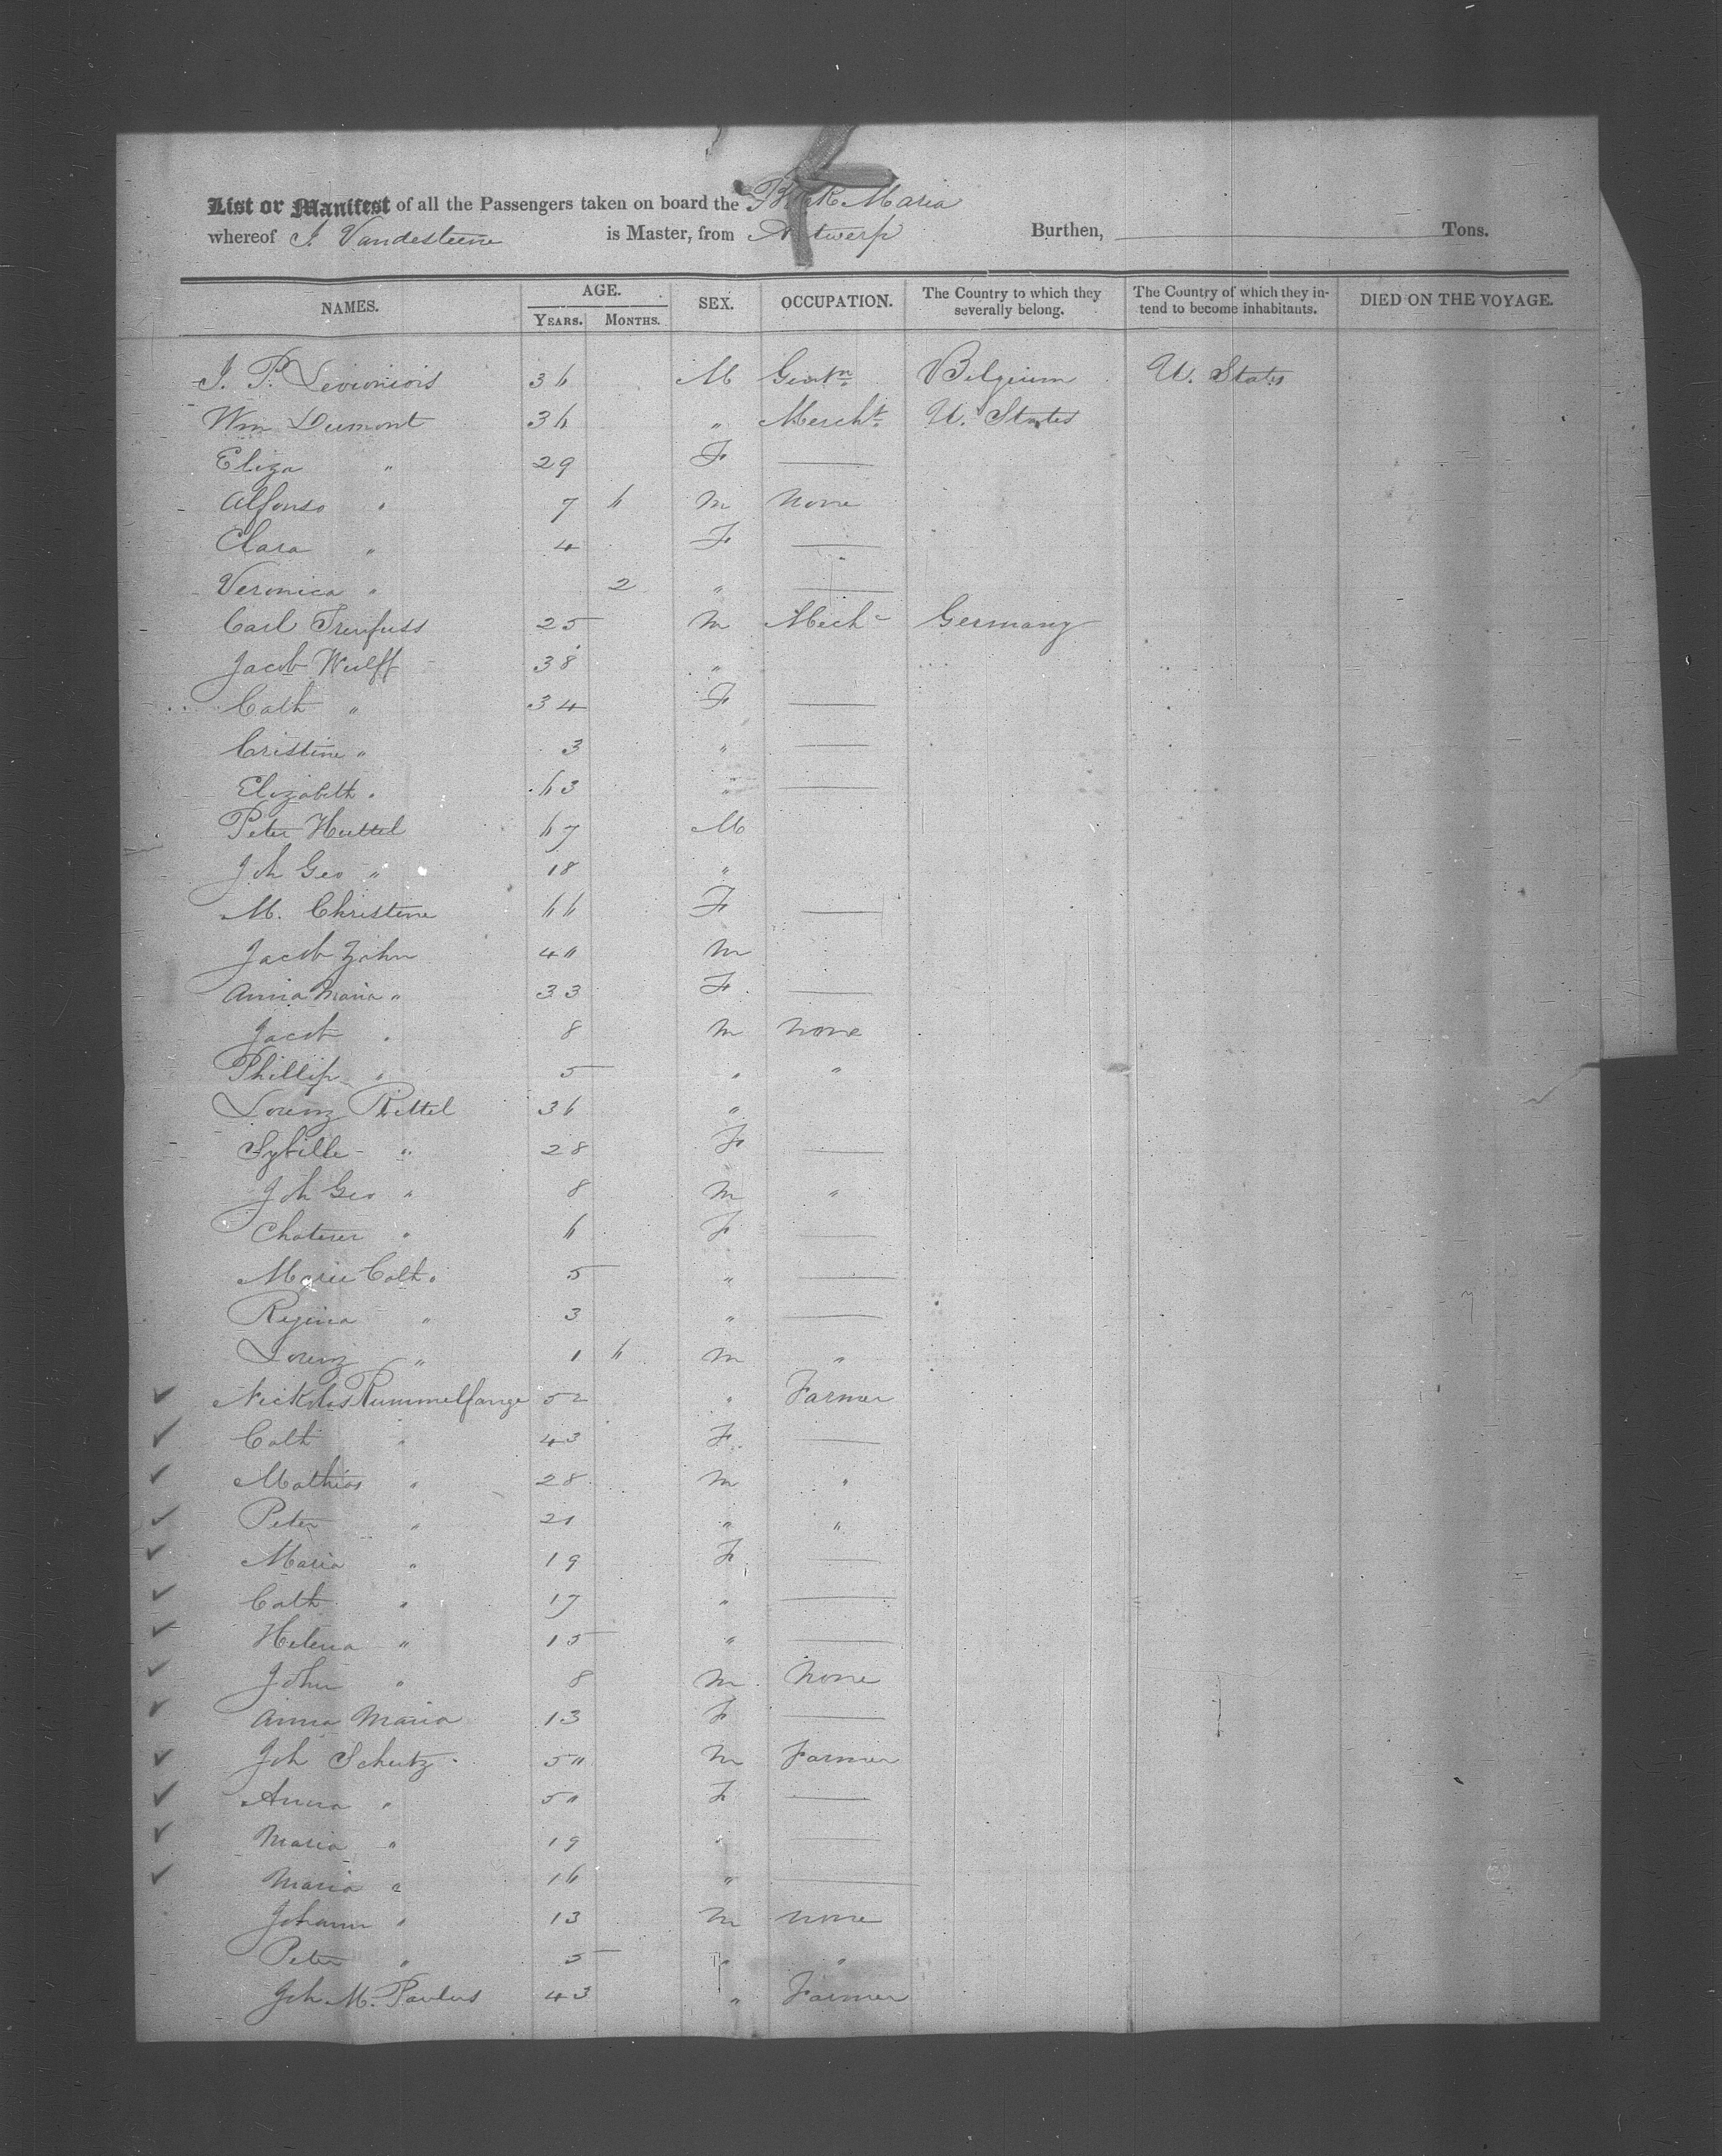 List or Manifest of all the Passengers taken on board the Bark Maria
whereof J. Vandesteene is Master, from Antwerp Burthen, Tons.
NAMES. AGE. YEARS. MONTHS. SEX. OCCUPATION. The Country to which they severally belong. The Country of which they intend to become inhabitants. DIED ON THE VOYAGE.
J. P. 36 M Gentn Belgium U. States
Wm Dumont 36 " Mercht U. States
Eliza " 29 F —
Alfonso " 7 6 M None
Clara " 4 F —
Veronica " 2 " —
Carl Treufuss 25 M Mechc Germany
Jacob Wulff 38 "
Cath " 34 F —
Cristine " 3 " —
Elizabeth " 63 " —
Peter Huttel 67 M
Joh Geo " 18 "
M. Christine 66 F —
Jacob Zohn 40 M
Anna Maria " 33 F —
Jacob " 8 M None
Phillip " 5 " "
Lorenz Rittel 36 "
Sybille " 28 F —
Joh Geo " 8 M "
" 6 F —
Marie Cath " 5 " —
Regina " 3 " —
Lorenz " 1 6 M "
Nickolas Rummelfange 52 " Farmer
Cath " 43 F —
Mathias " 28 M "
Peter " 21 " "
Maria " 19 F —
Cath " 17 " —
Helena " 15 " —
John " 8 M None
Anna Maria 13 F —
Joh Schutz 50 M Farmer
Anna " 50 F —
Maria " 19 " —
Maria " 16 " —
Johann " 13 M None
Peter " 5 " "
Joh M. Paulus 43 " Farmer